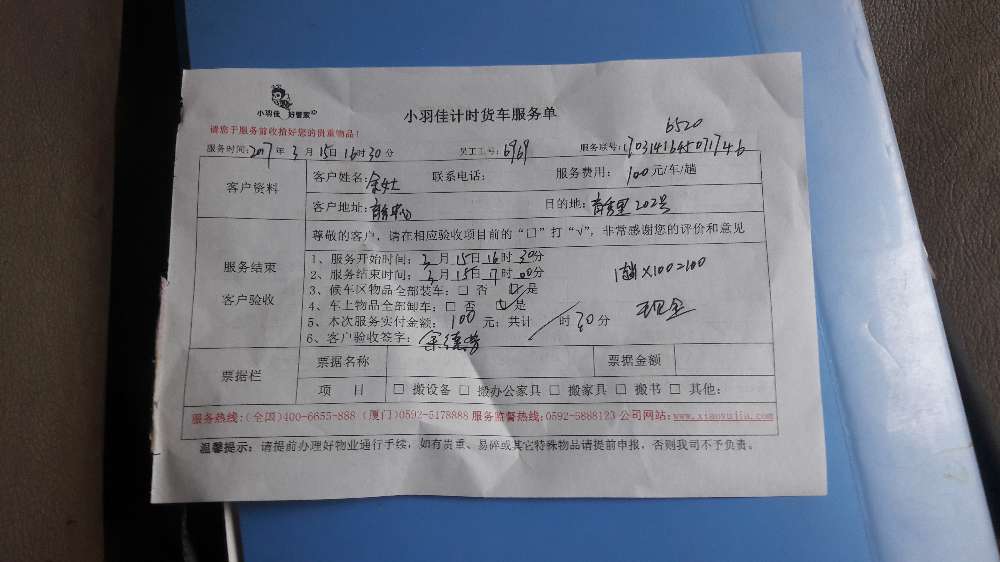 小羽佳 好管家
小羽佳计时货车服务单
请您于服务前收拾好您的贵重物品！
6520
服务时间:2017年3月15日16时30分 员工工号:6969 服务联号:1703141645071746
客户资料
客户姓名: 联系电话: 服务费用:100元/车/趟
客户地址: 目的地: 202号
服务结束
客户验收
尊敬的客户，请在相应验收项目前的“口”打“√”，非常感谢您的评价和意见
1、服务开始时间:3月15日16时30分
2、服务结束时间:3月15日17时00分
1趟×100=100
3、候车区物品全部装车:□否 ☑是
4、车上物品全部卸车:□否 ☑是
现金
5、本次服务实付金额:100元:共计 / 时30分
6、客户验收签字:
票据栏
票据名称 票据金额
项 目 □搬设备 □搬办公家具 □搬家具 □搬书 □其他:
服务热线:(全国)400-6655-888 (厦门)0592-5178888 服务监督热线:0592-5888123 公司网站:www.xiaoyujia.com
温馨提示：请提前办理好物业通行手续，如有贵重、易碎或其它特殊物品请提前申报，否则我司不予负责。